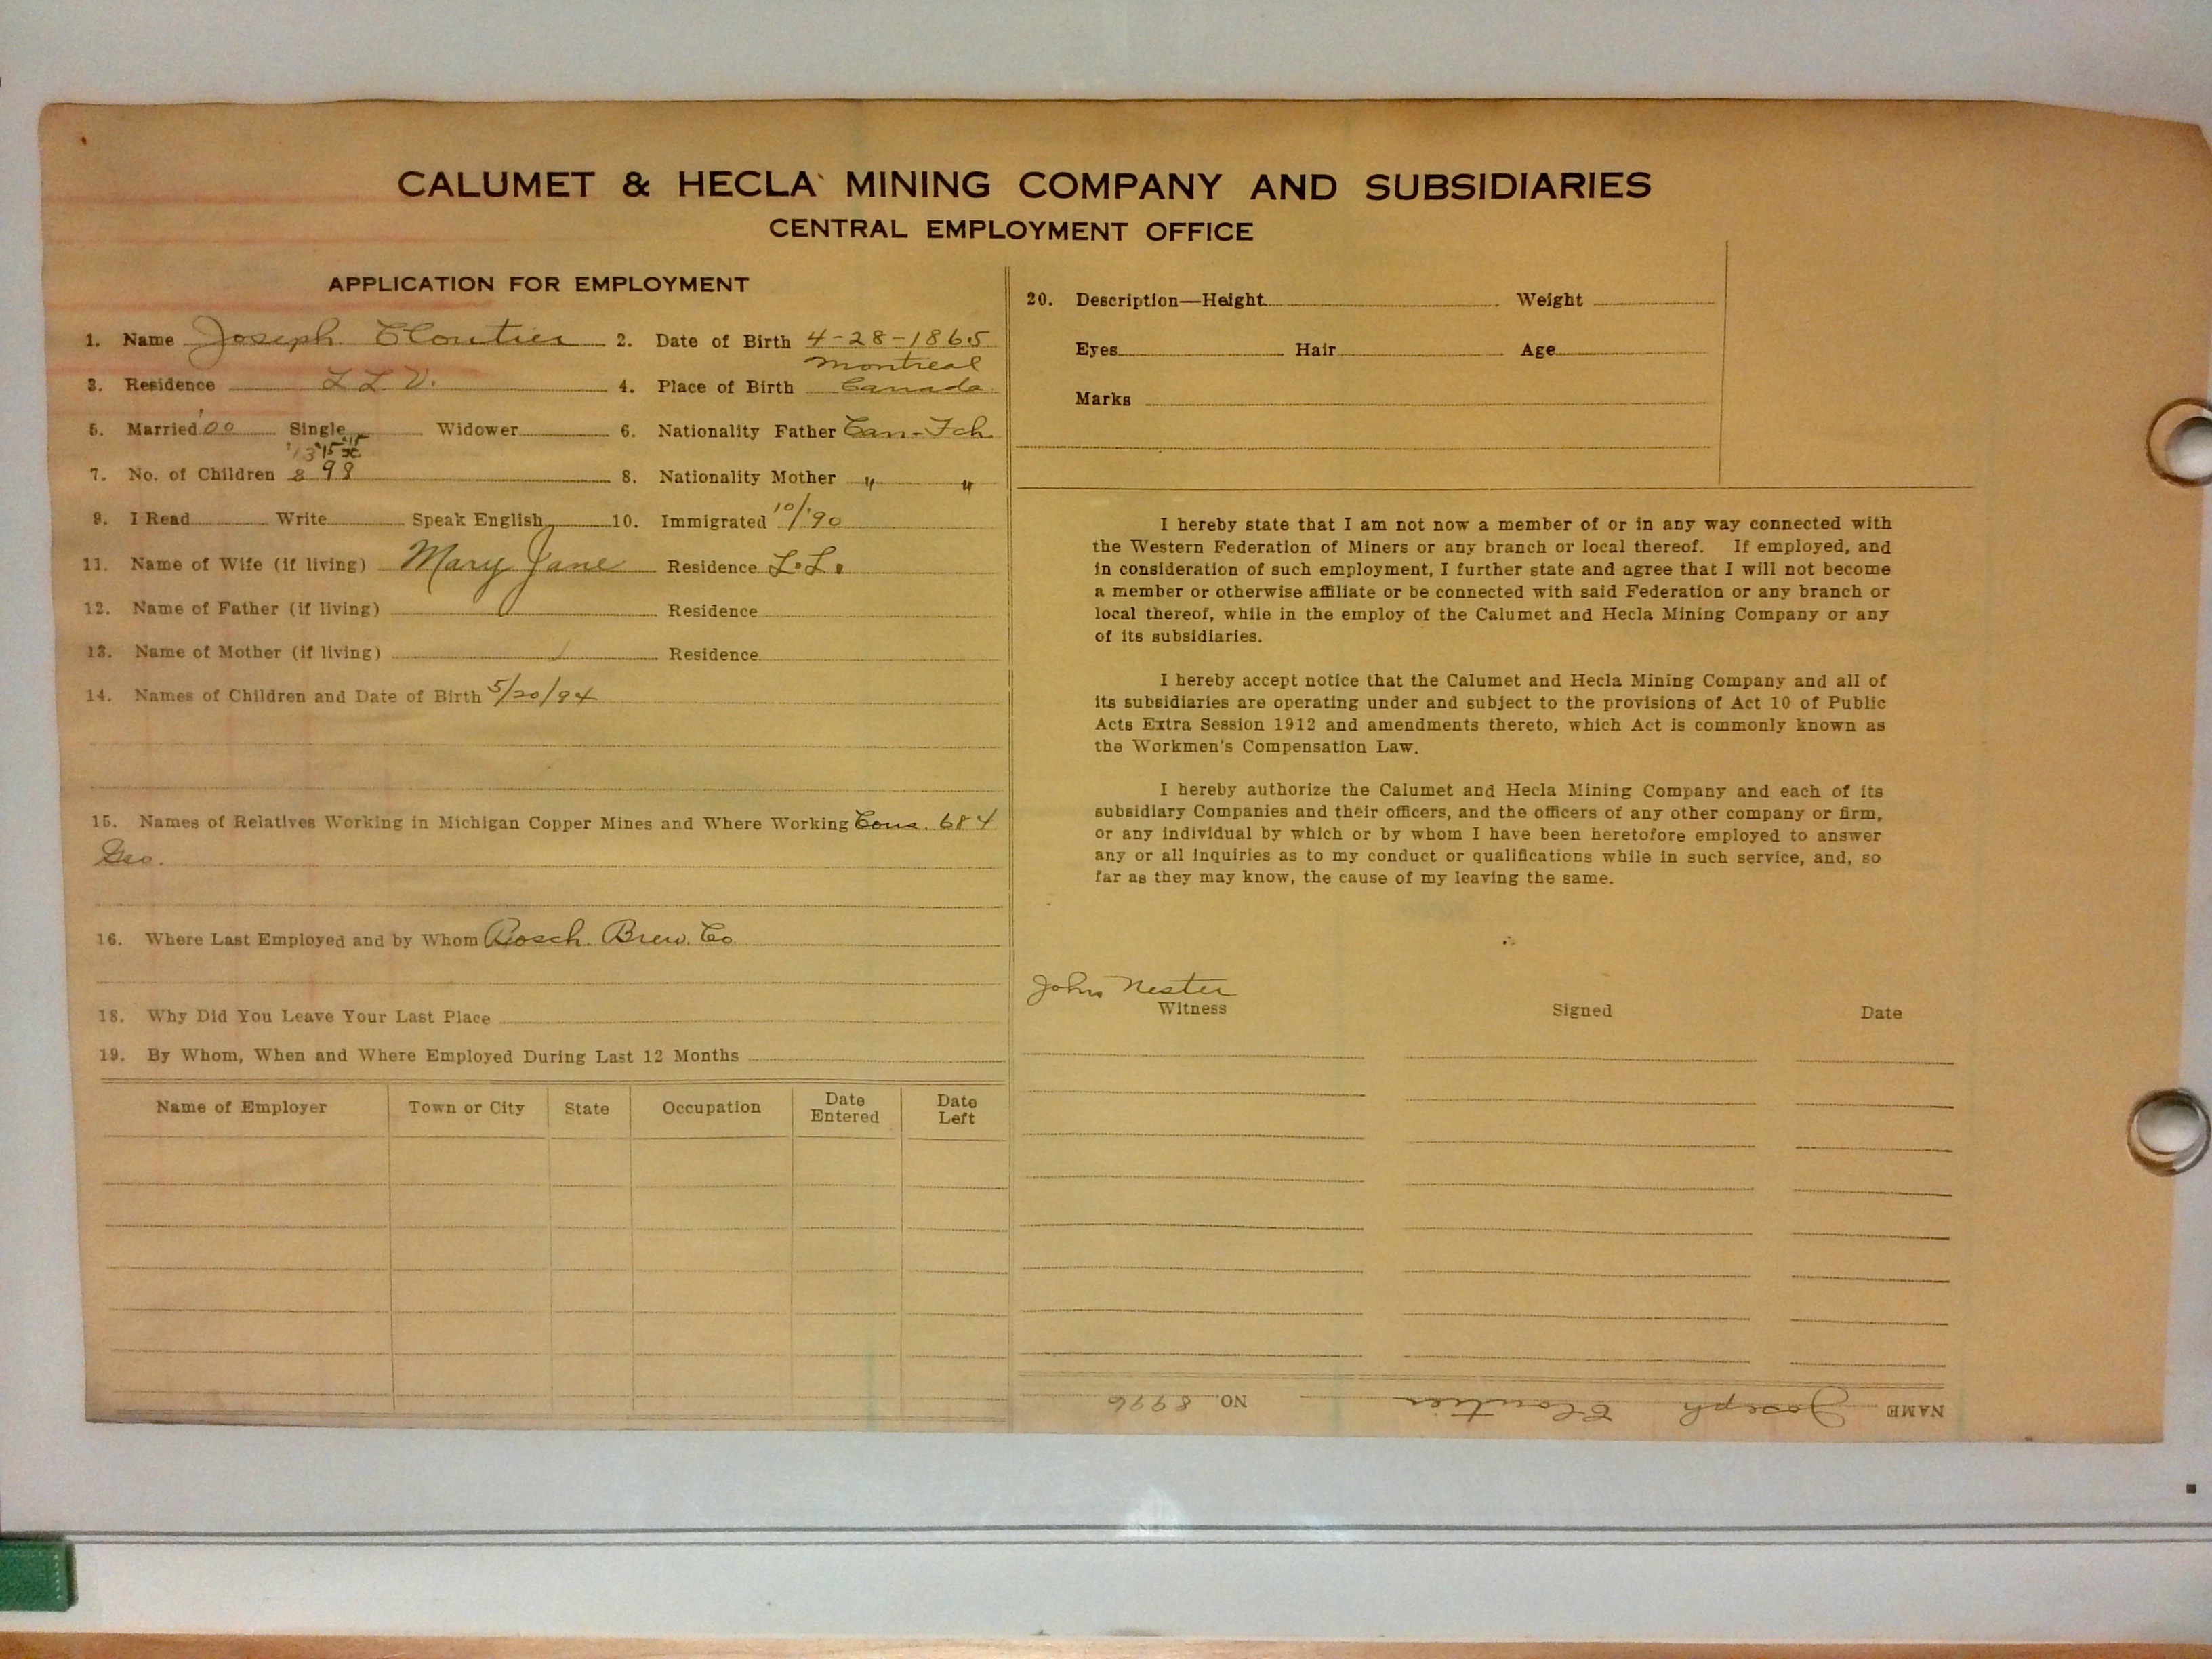 CALUMET & HECLA MINING COMPANY AND SUBSIDIARIES
CENTRAL EMPLOYMENT OFFICE
APPLICATION FOR EMPLOYMENT
1. Name Joseph Cloutier 2. Date of Birth 4-28-1865
3. Residence L L V. 4. Place of Birth Montreal Canada
5. Married '00 Single Widower 6. Nationality Father Can-Fch.
'13 '15
7. No. of Children 8 9 8 8. Nationality Mother " "
9. I Read Write Speak English 10. Immigrated 10/'90
11. Name of Wife (if living) Mary Jane Residence L. L.
12. Name of Father (if living) Residence
13. Name of Mother (if living) Residence
14. Names of Children and Date of Birth 5/20/94
15. Names of Relatives Working in Michigan Copper Mines and Where Working Cous. 684
Geo.
16. Where Last Employed and by Whom Bosch. Brew. Co
18. Why Did You Leave Your Last Place
19. By Whom, When and Where Employed During Last 12 Months
Name of Employer Town or City State Occupation Date Entered Date Left
20. Description—Height Weight
Eyes Hair Age
Marks
I hereby state that I am not now a member of or in any way connected with
the Western Federation of Miners or any branch or local thereof. If employed, and
in consideration of such employment, I further state and agree that I will not become
a member or otherwise affiliate or be connected with said Federation or any branch or
local thereof, while in the employ of the Calumet and Hecla Mining Company or any
of its subsidiaries.
I hereby accept notice that the Calumet and Hecla Mining Company and all of
its subsidiaries are operating under and subject to the provisions of Act 10 of Public
Acts Extra Session 1912 and amendments thereto, which Act is commonly known as
the Workmen's Compensation Law.
I hereby authorize the Calumet and Hecla Mining Company and each of its
subsidiary Companies and their officers, and the officers of any other company or firm,
or any individual by which or by whom I have been heretofore employed to answer
any or all inquiries as to my conduct or qualifications while in such service, and, so
far as they may know, the cause of my leaving the same.
John Nester
Witness Signed Date
NAME Joseph Cloutier NO. 8996